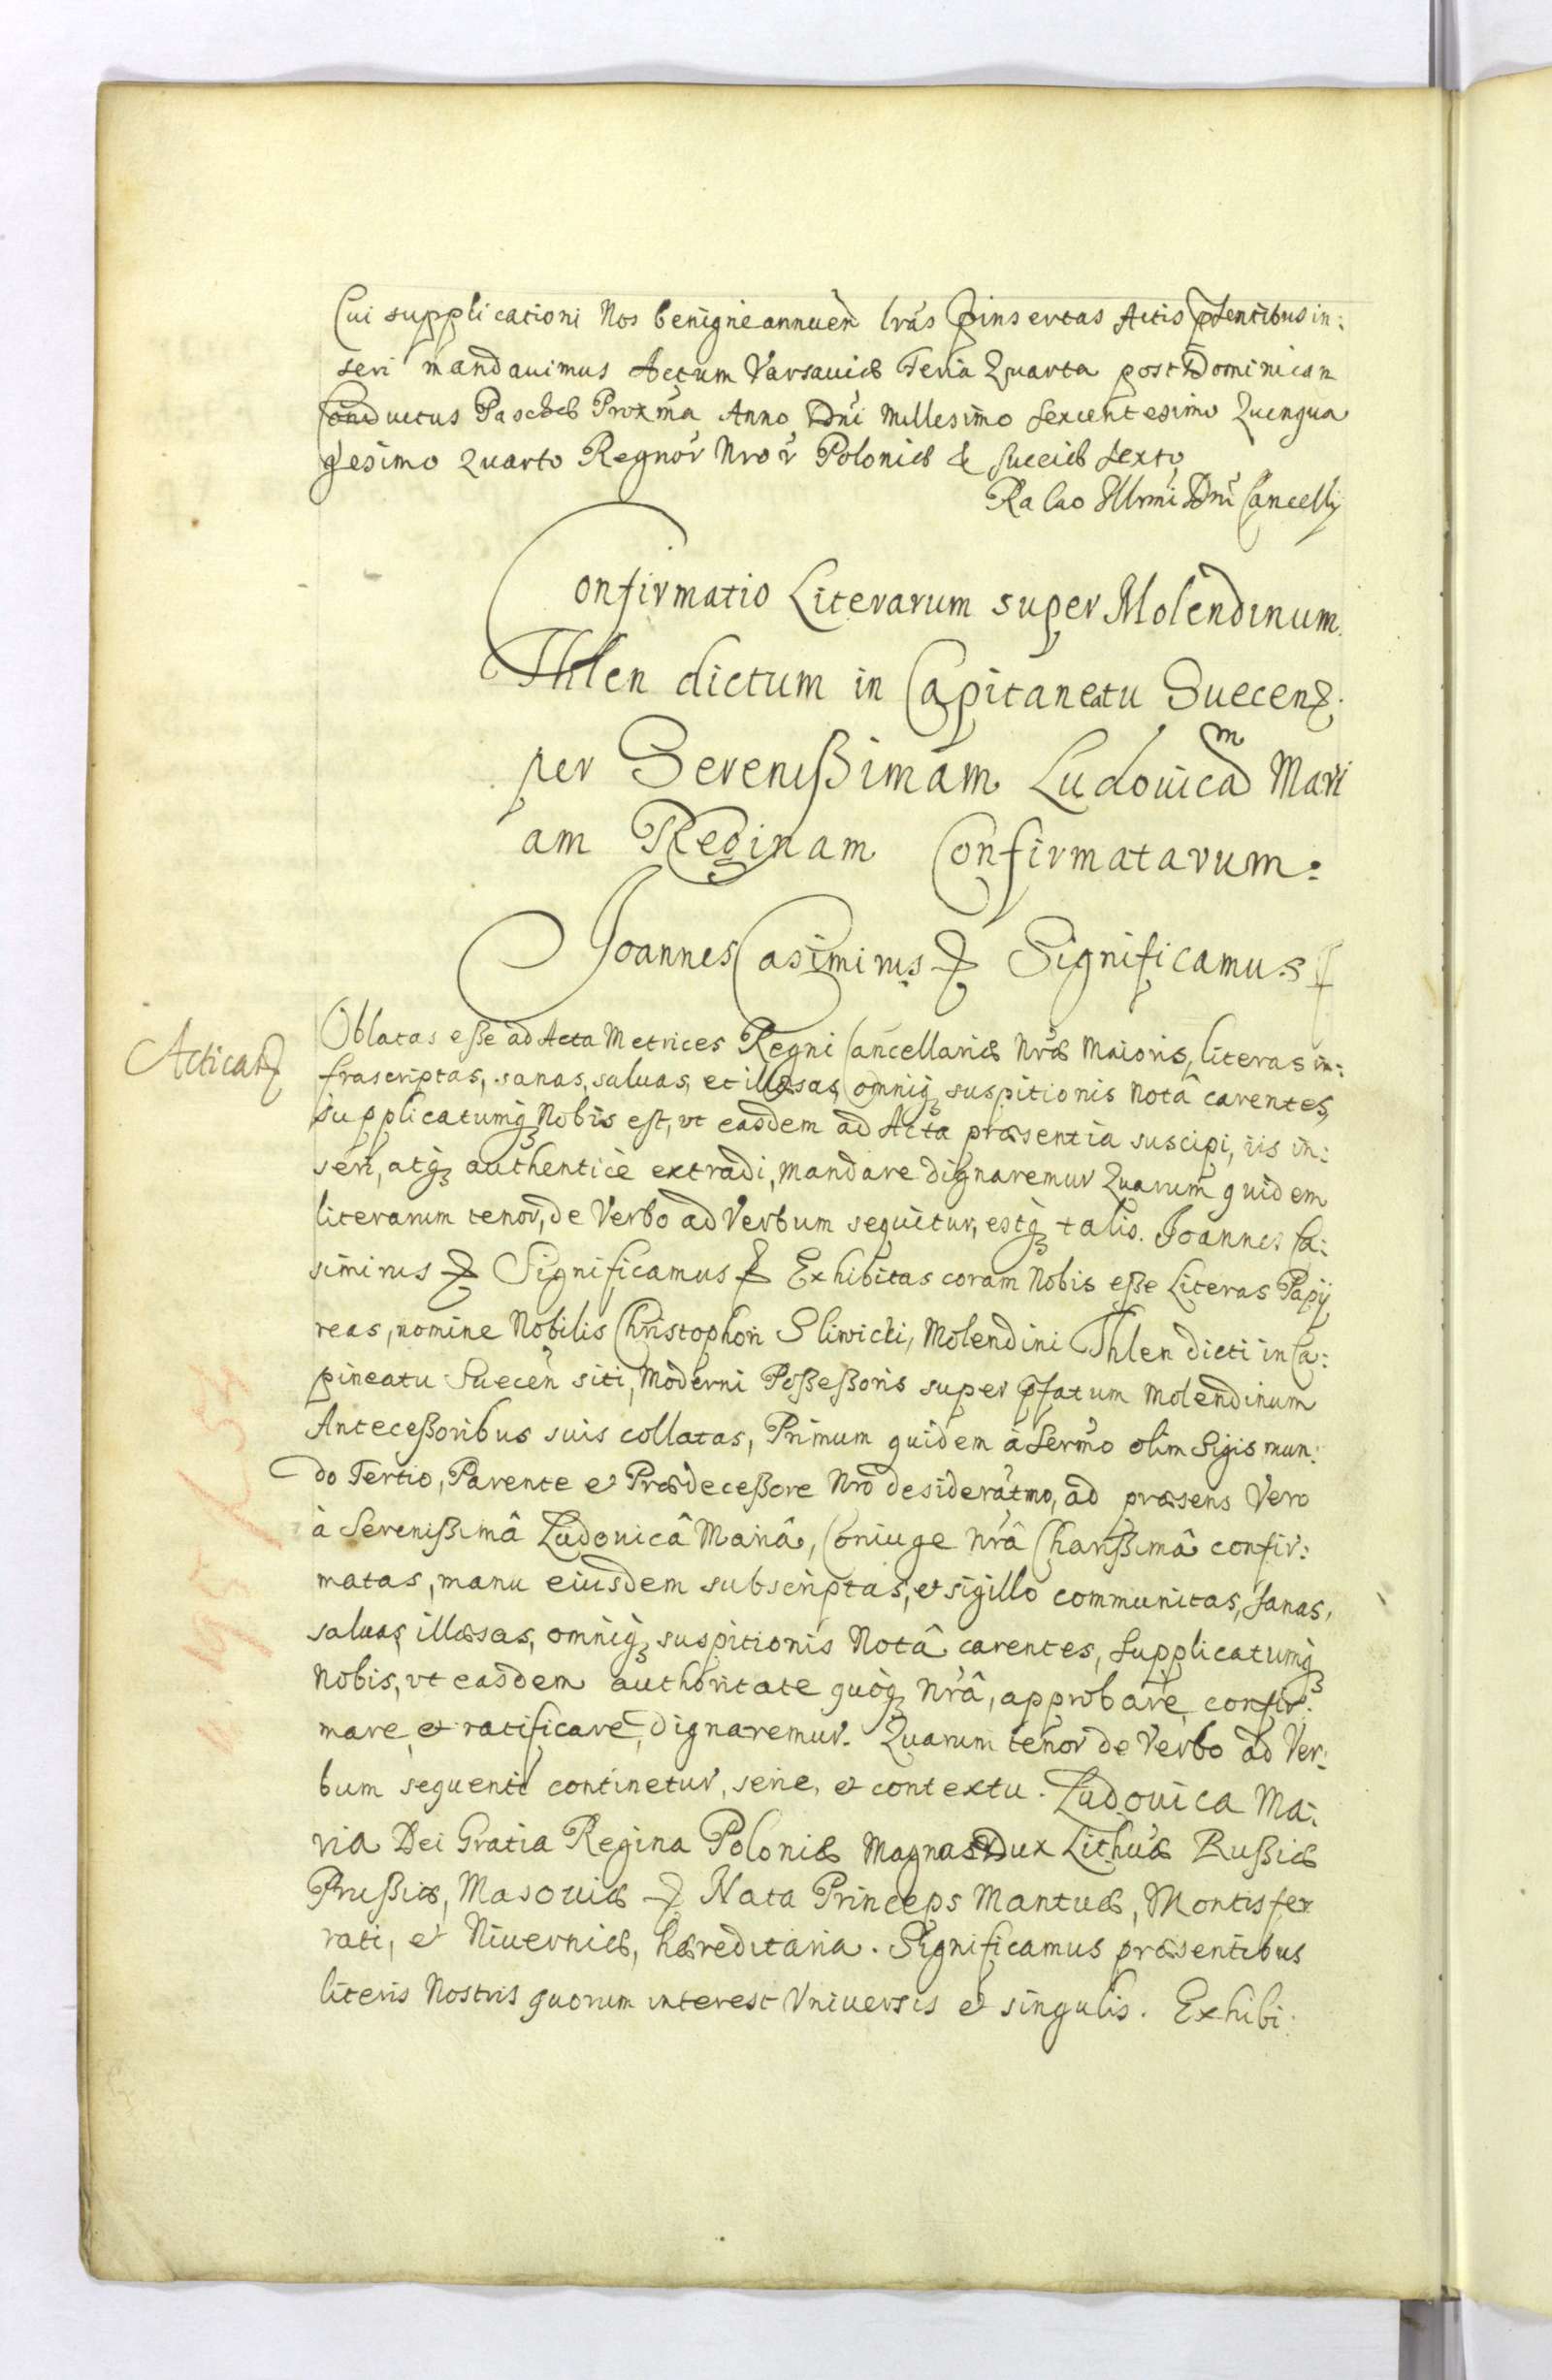 Cui supplicationi Nos benigne annuen̄ lrãs p̄insertas Actis p̄sentibus in:
seri mandauimus Actum Varsauiæ Feria Quarta post Dominicam
Conductus Paschæ Prox̃ma Anno Dñi Millesimo sexcentesimo Quinqua
gesimo Quarto Regnor̃ Nror̃ Poloniæ & Sueciæ sexto
Ra lao Illrmi Dñi Cancellj
Confirmatio Literarum super Molendinum
Thlen dictum in Capitaneatu Suecen̄.
per Serenißimam Ludouicam Mari
am Reginam Confirmatarum:
Joannes Casimirus & Significamus &
Acticatȝ
Oblatas eße ad Acta Metrices Regni Cancellariæ Nrã Maioris, literas in:
frascriptas, sanas, saluas, et illæsas, omniq suspitionis notâ carentes,
supplicatumq Nobis est, vt easdem ad Acta præsentia suscipi, iis in:
seri, atq authenticè extradi, mandare dignaremur Quarum quidem
literarum tenor, de Verbo ad Verbum sequitur, estq talis. Joannes Ca:
simirus & Significamus & Exhibitas coram Nobis eße Literas Papy
reas, nomine Nobilis Christophori Sliwicki, Molendini Thlen dicti in Ca:
pineatu Suecen̄ siti, Moderni Poßeßoris super p̄fatum Molendinum
Anteceßoribus suis collatas, Primum quidem à Sermo olim Sigismun:
do Tertio, Parente et Prædeceßore Nro desideratmo, ad præsens Vero
à Serenißimâ Ludouicâ Mariâ, Coniuge Nrâ Charißimâ confir:
matas, manu eiusdem subscriptas, et sigillo communitas, sanas,
saluas, illæsas, omniq suspitionis Notâ carentes, supplicatumq
Nobis, vt easdem authoritate quoq Nrâ, approbare, confir:
mare, et ratificare, dignaremur. Quarum tenor de Verbo ad Ver:
bum sequenti continetur, serie, et contextu. Ludouica Ma:
ria Dei Gratia Regina Poloniæ Magna Dux Lithuæ Rußiæ
Prußiæ, Masouiæ & Nata Princeps Mantuæ, Montisfer
rati, et Niuerniæ, hæreditaria. Significamus præsentibus
literis Nostris quorum interest Vniuersis et singulis. Exhibi: